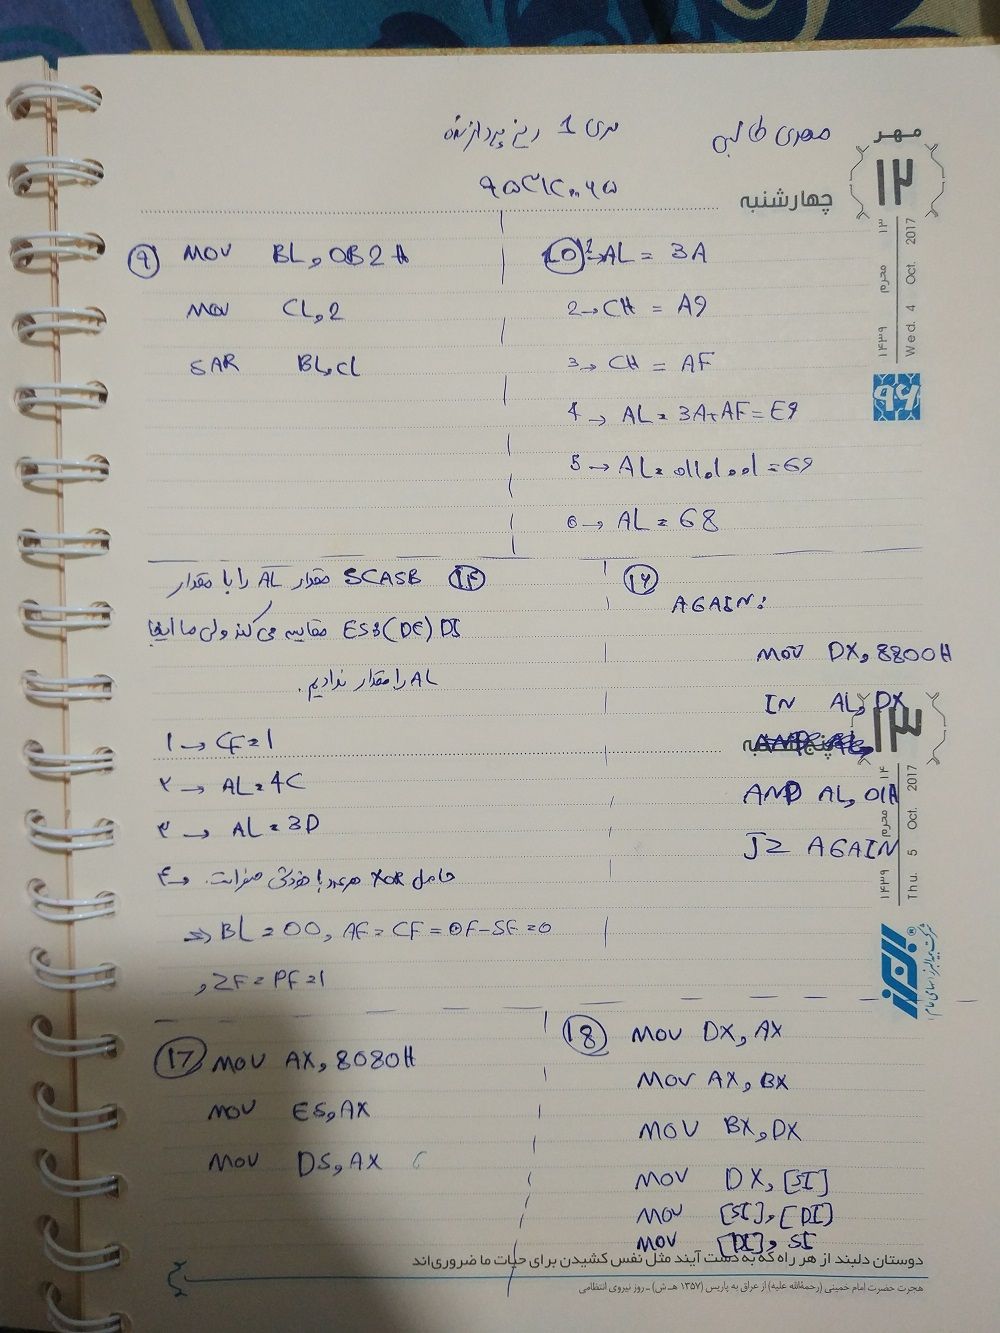 مهدی طالبی سری 1 ریزپردازنده
مهر
۱۲
چهارشنبه
۱۳ محرم ۱۴۳۹
Wed. 4 Oct. 2017
۹۶
۹ MOV BL, 0B2H
MOV CL, 2
SAR BL, CL
10 1→ AL = 3A
2→ CH = A9
3→ CH = AF
4→ AL = 3A+AF=E9
5→ AL=01101001=69
6→ AL=68
۱۴ SCASB مقدار AL را با مقدار
ES:(DE) DI مقایسه می کند ولی ما اینجا
AL را مقدار ندادیم.
۱→ CF=1
۲→ AL=4C
۳→ AL=3D
۴→ حاصل XOR هر عدد با خودش صفر است.
⇒ BL=00, AF=CF=OF=SF=0
, ZF=PF=1
۱۶
AGAIN:
MOV DX, 8800H
IN AL, DX
AND AL, 01H
JZ AGAIN
۱۳
پنج‌شنبه
۱۴ محرم ۱۴۳۹
Thu. 5 Oct. 2017
البرز®
شرکت بیمه البرز (سهامی عام)
17 MOV AX, 8080H
MOV ES, AX
MOV DS, AX
18 MOV DX, AX
MOV AX, BX
MOV BX, DX
MOV DX, [SI]
MOV [SI], [DI]
MOV [DI], SI
دوستان دلبند از هر راه که به دست آیند مثل نفس کشیدن برای حیات ما ضروری‌اند
هجرت حضرت امام خمینی (رحمة‌الله علیه) از عراق به پاریس (۱۳۵۷ هـ.ش) ـ روز نیروی انتظامی